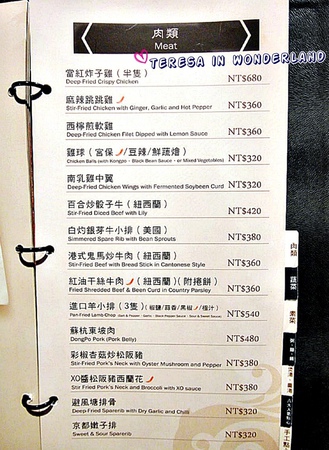 肉類
Meat
TERESA IN WONDERLAND
當紅炸子雞 (半隻)
Deep-Fried Crispy Chicken
NT$680
麻辣跳跳雞
Stir-Fried Chicken with Ginger, Garlic and Hot Pepper
NT$360
西檸煎軟雞
Deep-Fried Chicken Filet Dipped with Lemon Sauce
NT$360
雞球 (宮保/豆辣/鮮蔬燴)
Chicken Balls (with Kongpo、Black Bean Sauce、or Mixed Vegetables)
NT$320
南乳雞中翼
Deep-Fried Chicken Wings with Fermented Soybean Curd
NT$320
百合炒骰子牛 (紐西蘭)
Stir-Fried Diced Beef with Lily
NT$420
白灼銀芽牛小排 (美國)
Simmered Spare Rib with Bean Sprouts
NT$380
港式鬼馬炒牛肉 (紐西蘭)
Stir-Fried Beef with Bread Stick in Cantonese Style
NT$360
紅油干絲牛肉 (紐西蘭) (附捲餅)
Fried Shredded Beef & Bean Curd in Country Parsley
NT$360
進口羊小排 (3隻) (椒鹽/蒜香/黑椒/橙汁)
NT$540
蘇杭東坡肉
DongPo Pork (Pork Belly)
NT$480
彩椒杏菇炒松阪豬
Stir-Fried Pork's Neck with Oyster Mushroom and Pepper
NT$380
XO醬松阪豬西蘭花
Stir-Fried Pork's Neck and Broccoli with XO sauce
NT$380
避風塘排骨
Deep-Fried Sparerib with Dry Garlic and Chilli
NT$320
京都嫩子排
Sweet & Sour Sparerib
NT$320
肉類
蔬菜
素菜